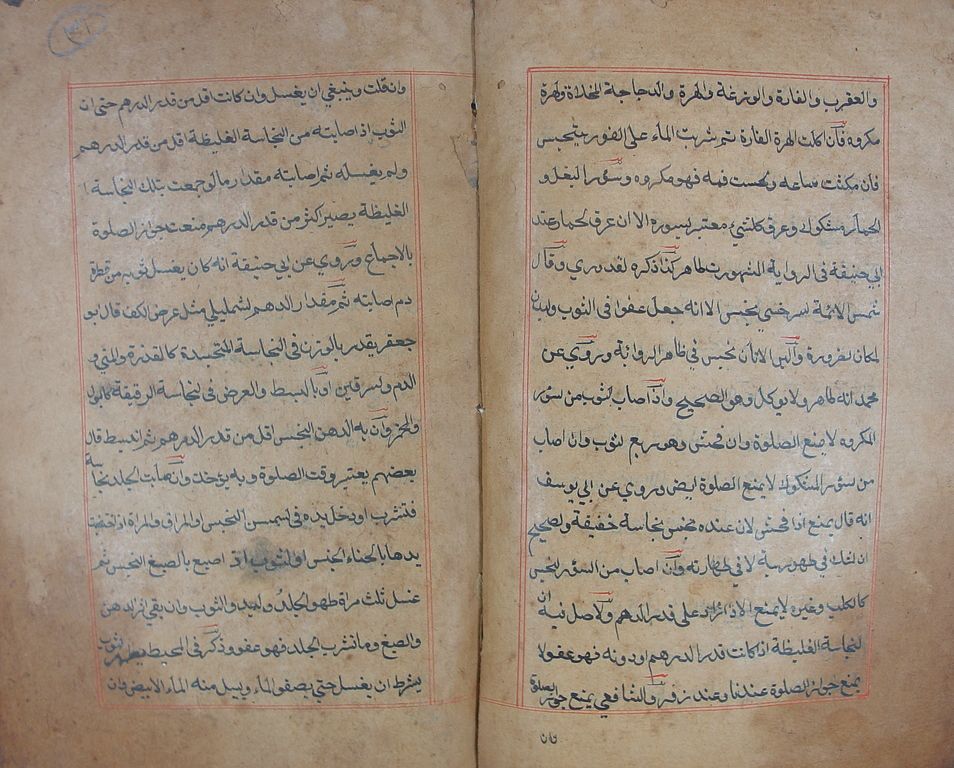 والعقرب والفارة والوزغة والهرة والدجاجة المخلاة والهرة
مكروه فان اكلت الهرة الفارة ثم شربت الماء على الفور يتنجس
فان مكثت ساعه ولحست فمه فهو مكروه وسؤر البغل و
الحمار مشكوك وعرق كلشئ معتبر بسوره الا ان عرق الحمار عند
ابي حنيفة في الرواية المشهورت طاهر كذا ذكره لقدوري وقال
شمس الائمة لسرخسي نجس الا انه جعل عفوا في الثوب والبدن
لمكان لضرورة والبن الاتان نجس في ظاهر الرواية وروي عن
محمد انه طاهر ولا يوكل وهو الصحيح واذا اصاب لثوب من سؤر
المكروه لا يمنع الصلوة وان فحش وهو ربع لثوب وان اصاب
من سؤر المشكوك لا يمنع الصلوة ايض وروي عن ابي يوسف
انه قال يمنع اذا فحش لان عنده نجس نجاسة خفيفة والصحيح
ان لشك في طهورية لا في طهارته وان اصاب من السؤر لنجس
كالكلب وغيره لا يمنع الا اذا زاد على قدر الدرهم والاصل فيه ان
لنجاسة الغليظة اذا كانت قدر الدرهم او دونه فهو عفو لا
يمنع جواز الصلوة عندنا وعند زفر والشافعي يمنع جواز الصلوة
وان
٣١
وان قلت وينبغي ان يغسل وان كانت اقل من قدر الدرهم حتى ان
الثوب اذ اصابته من النجاسة الغليظة اقل من قدر الدرهم
ولم يغسله ثم اصابته مقدار ما لو جمعت بتلك النجاسة ا
الغليظة يصير اكثر من قدر الدرهم منعت جواز الصلوة
بالاجماع وروي عن ابي حنيفة انه كان يغسل ثوبه من قطرة
دم اصابته ثم مقدار الدهم مثل عرض الكف قال ابو
جعفر يقدر بالوزن في النجاسة المتجسدة كالعذرة والمني و
الدم ولسرقين او بالبسط والعرض في لنجاسة الرقيقة كالبول
والخمر وان به الدهن النجس اقل من قدر الدرهم ثم انبسط قال
بعضهم يعتبر وقت الصلوة وبه يؤخذ وان اصابت الجلد نجاسة
فتشرب او دخل يده في لسمن النجس او المراة اذ اختضبت
يدها بالحناء النجس او لثوب اذ اصبغ بالصبغ النجس ثم
غسل ثلث مراة طهر الجلد واليد والثوب وان بقي اثر الدهن
والصبغ وما تشرب الجلد فهو عفو وذكر في المحيط يطهر لثوب
بشرط ان يغسل حتى يصفو الماء ويسيل منه الماء الابيض وان